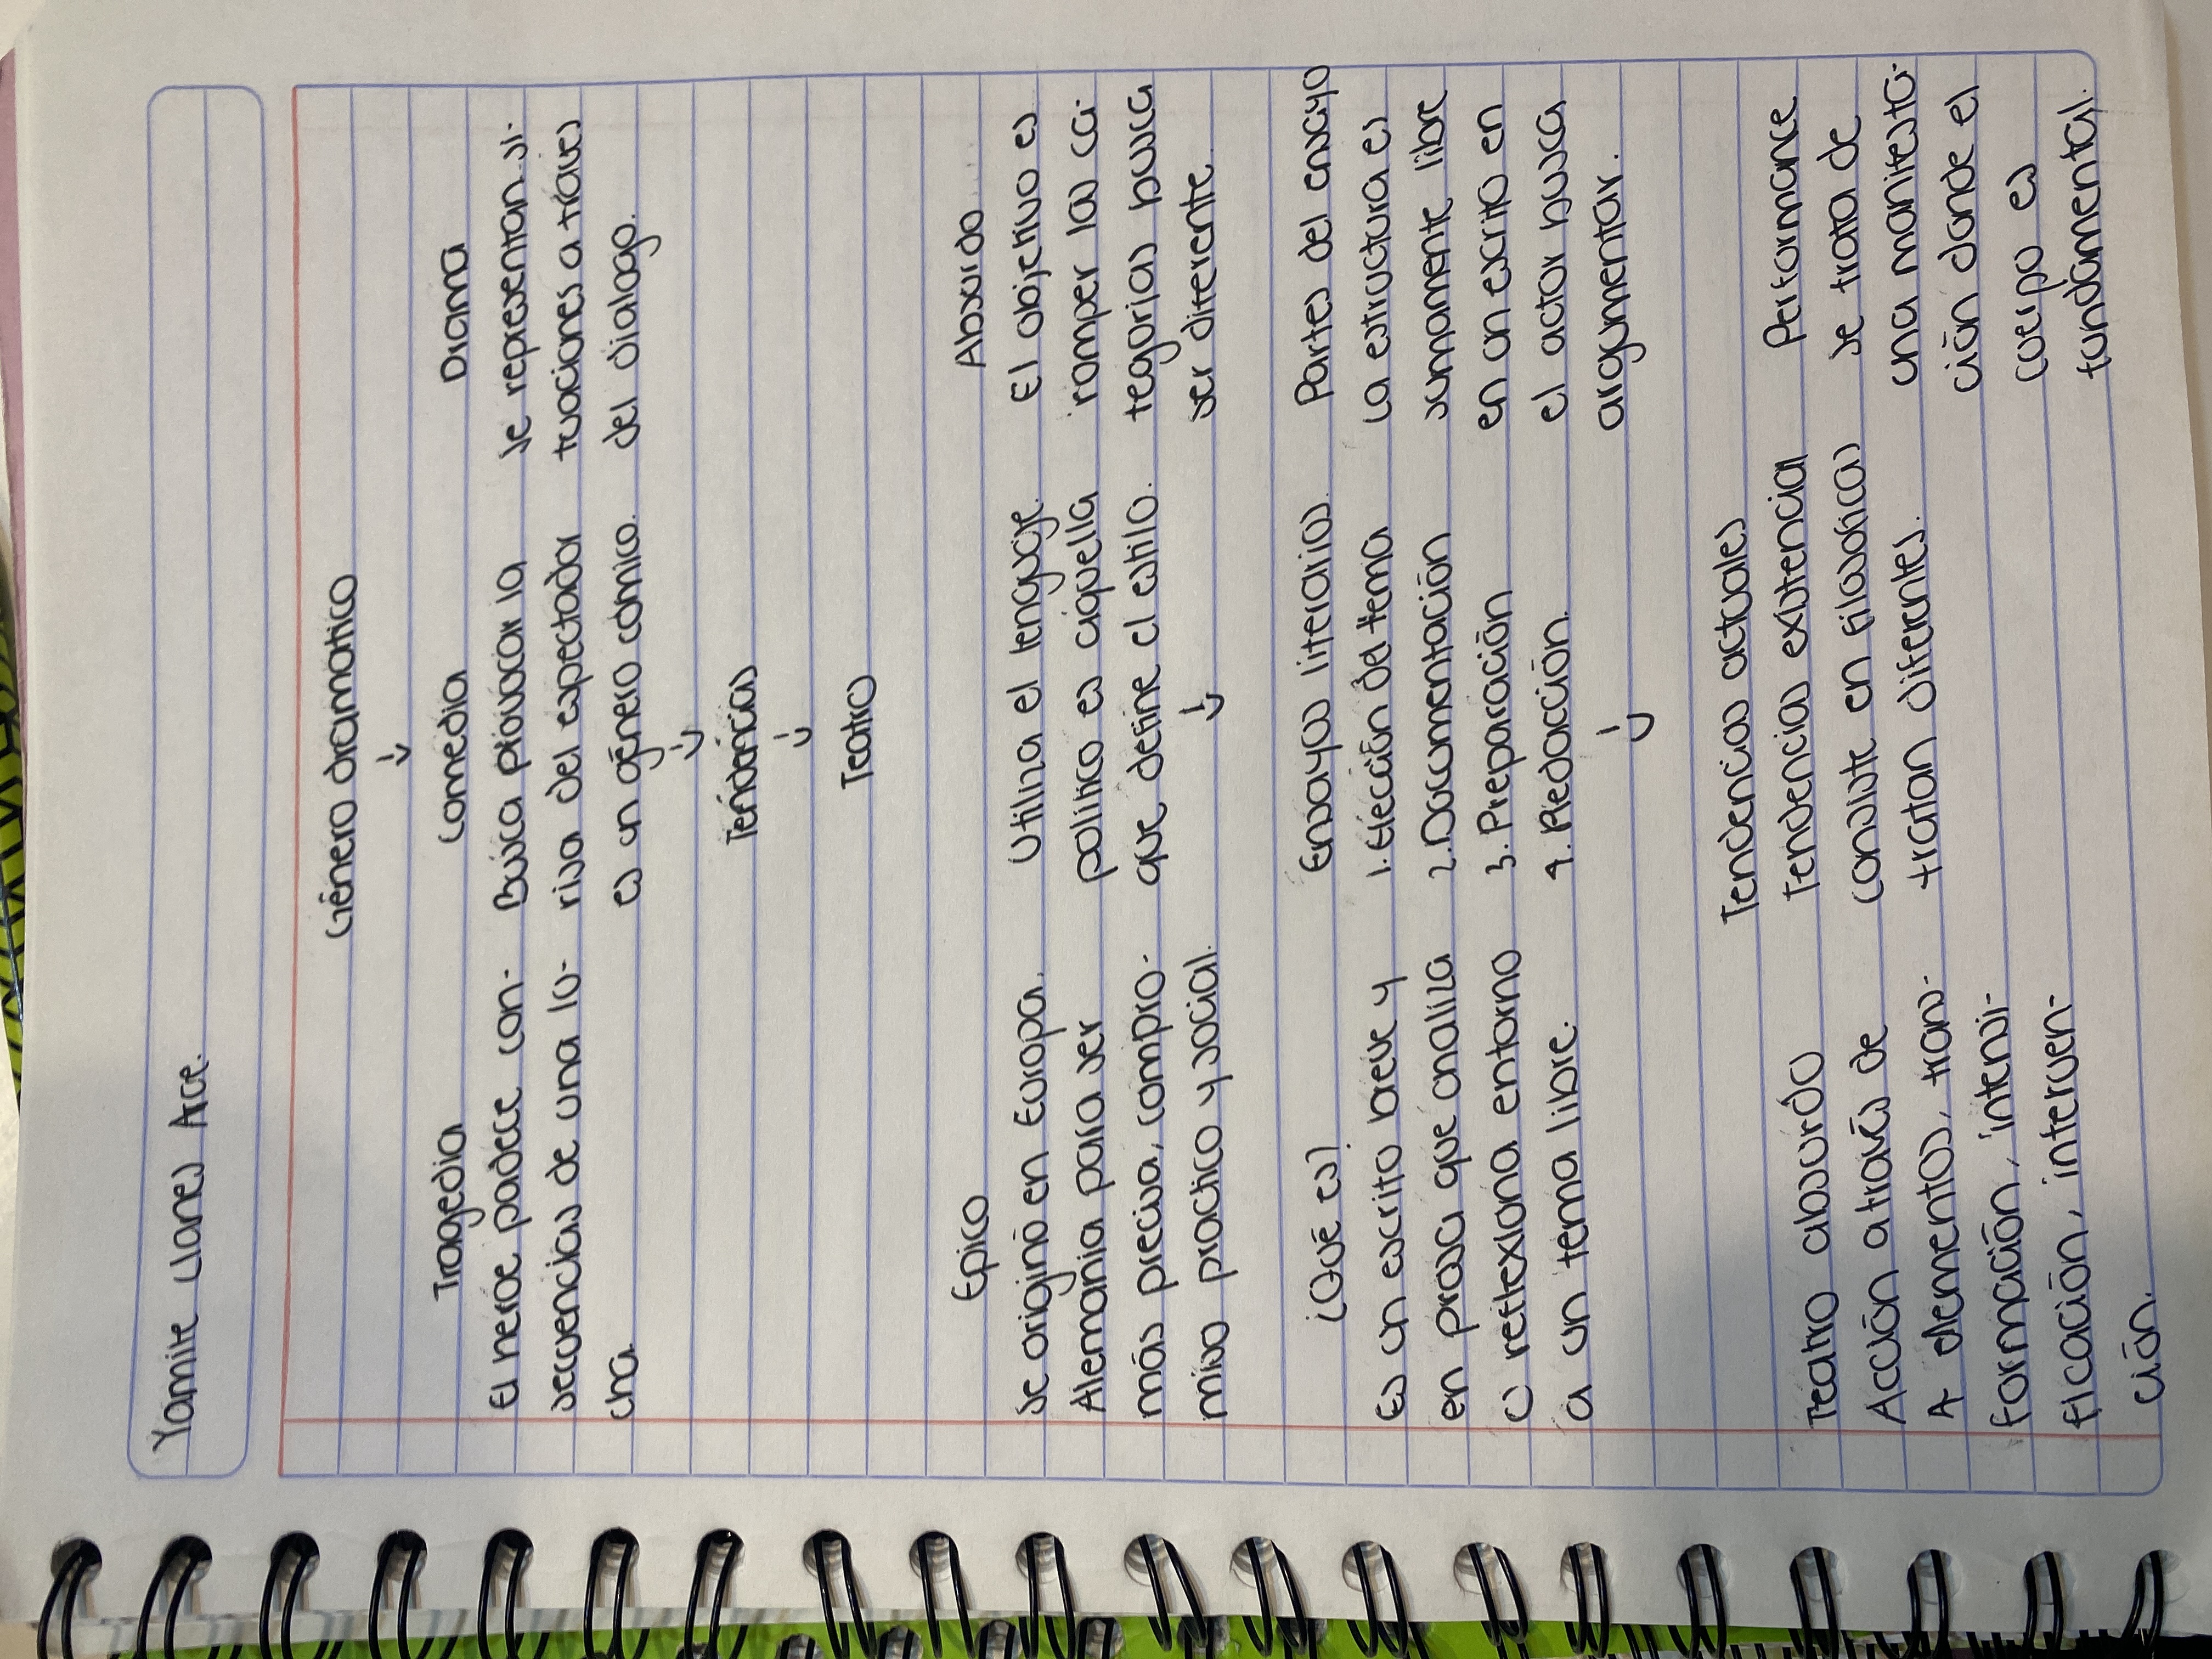 Yamile Llanes Arce.
Género dramatico
Tragedia
El heroe padece con-
secuencias de una lo-
cha.
Comedia
Busca provocar la
risa del espectador
es un género cómico.
Drama
se representan si-
tuaciones a traves
del dialogo.
Tendencias
Teatro
Epico
Se originó en Europa.
Alemania para ser
más precisa, compro-
miso practico y social.
Utiliza el lenguaje
politico es aquella
que define el estilo.
Absurdo
El objetivo es
romper las ca-
tegorias busca
ser diferente
¿Qué es?
Es un escrito breve y
en prosa que analiza
o reflexiona entorno
a un tema libre.
Ensayos literarios
1. Elección del tema
2. Documentación
3. Preparación
4. Redacción.
Partes del ensayo
La estructura es
sumamente libre
en un escrito en
el actor busca
argumentar.
Tendencias actuales
Teatro absurdo
Acción através de
4 elementos, trans-
formación, intensi-
ficación, interven-
ción.
Tendencias existencial
consiste en filosoficas
tratan diferentes.
Performance
se trata de
una manifesta-
ción donde el
cuerpo es
fundamental.